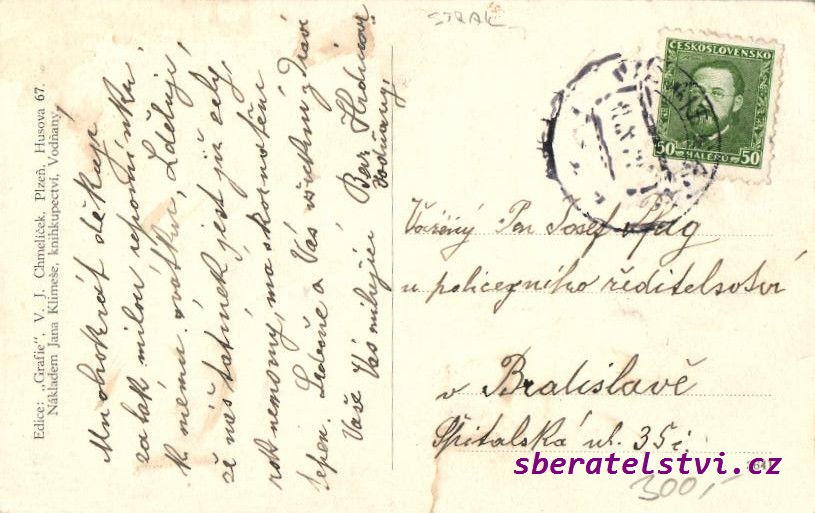 STRAK
Edice: „Grafie", V. J. Chmelíček, Plzeň, Husova 67.
Nákladem Jana Klimeše, knihkupectví, Vodňany.
Mnohokrát děkuji
za tak milou vzpomínku
k mému svátku, Sděluji,
že náš tatínek jest již celý
rok nemocný, má skornatění
tepen. Srdečně a Vás všechny zdraví
Vaše Vás milující
Vodňany.
ČESKOSLOVENSKO
50 HALÉŘŮ 50
Vážený Pan Josef
u policejního ředitelství
v Bratislavě
Špitalská ul. 35
sberatelstvi.cz
300,-